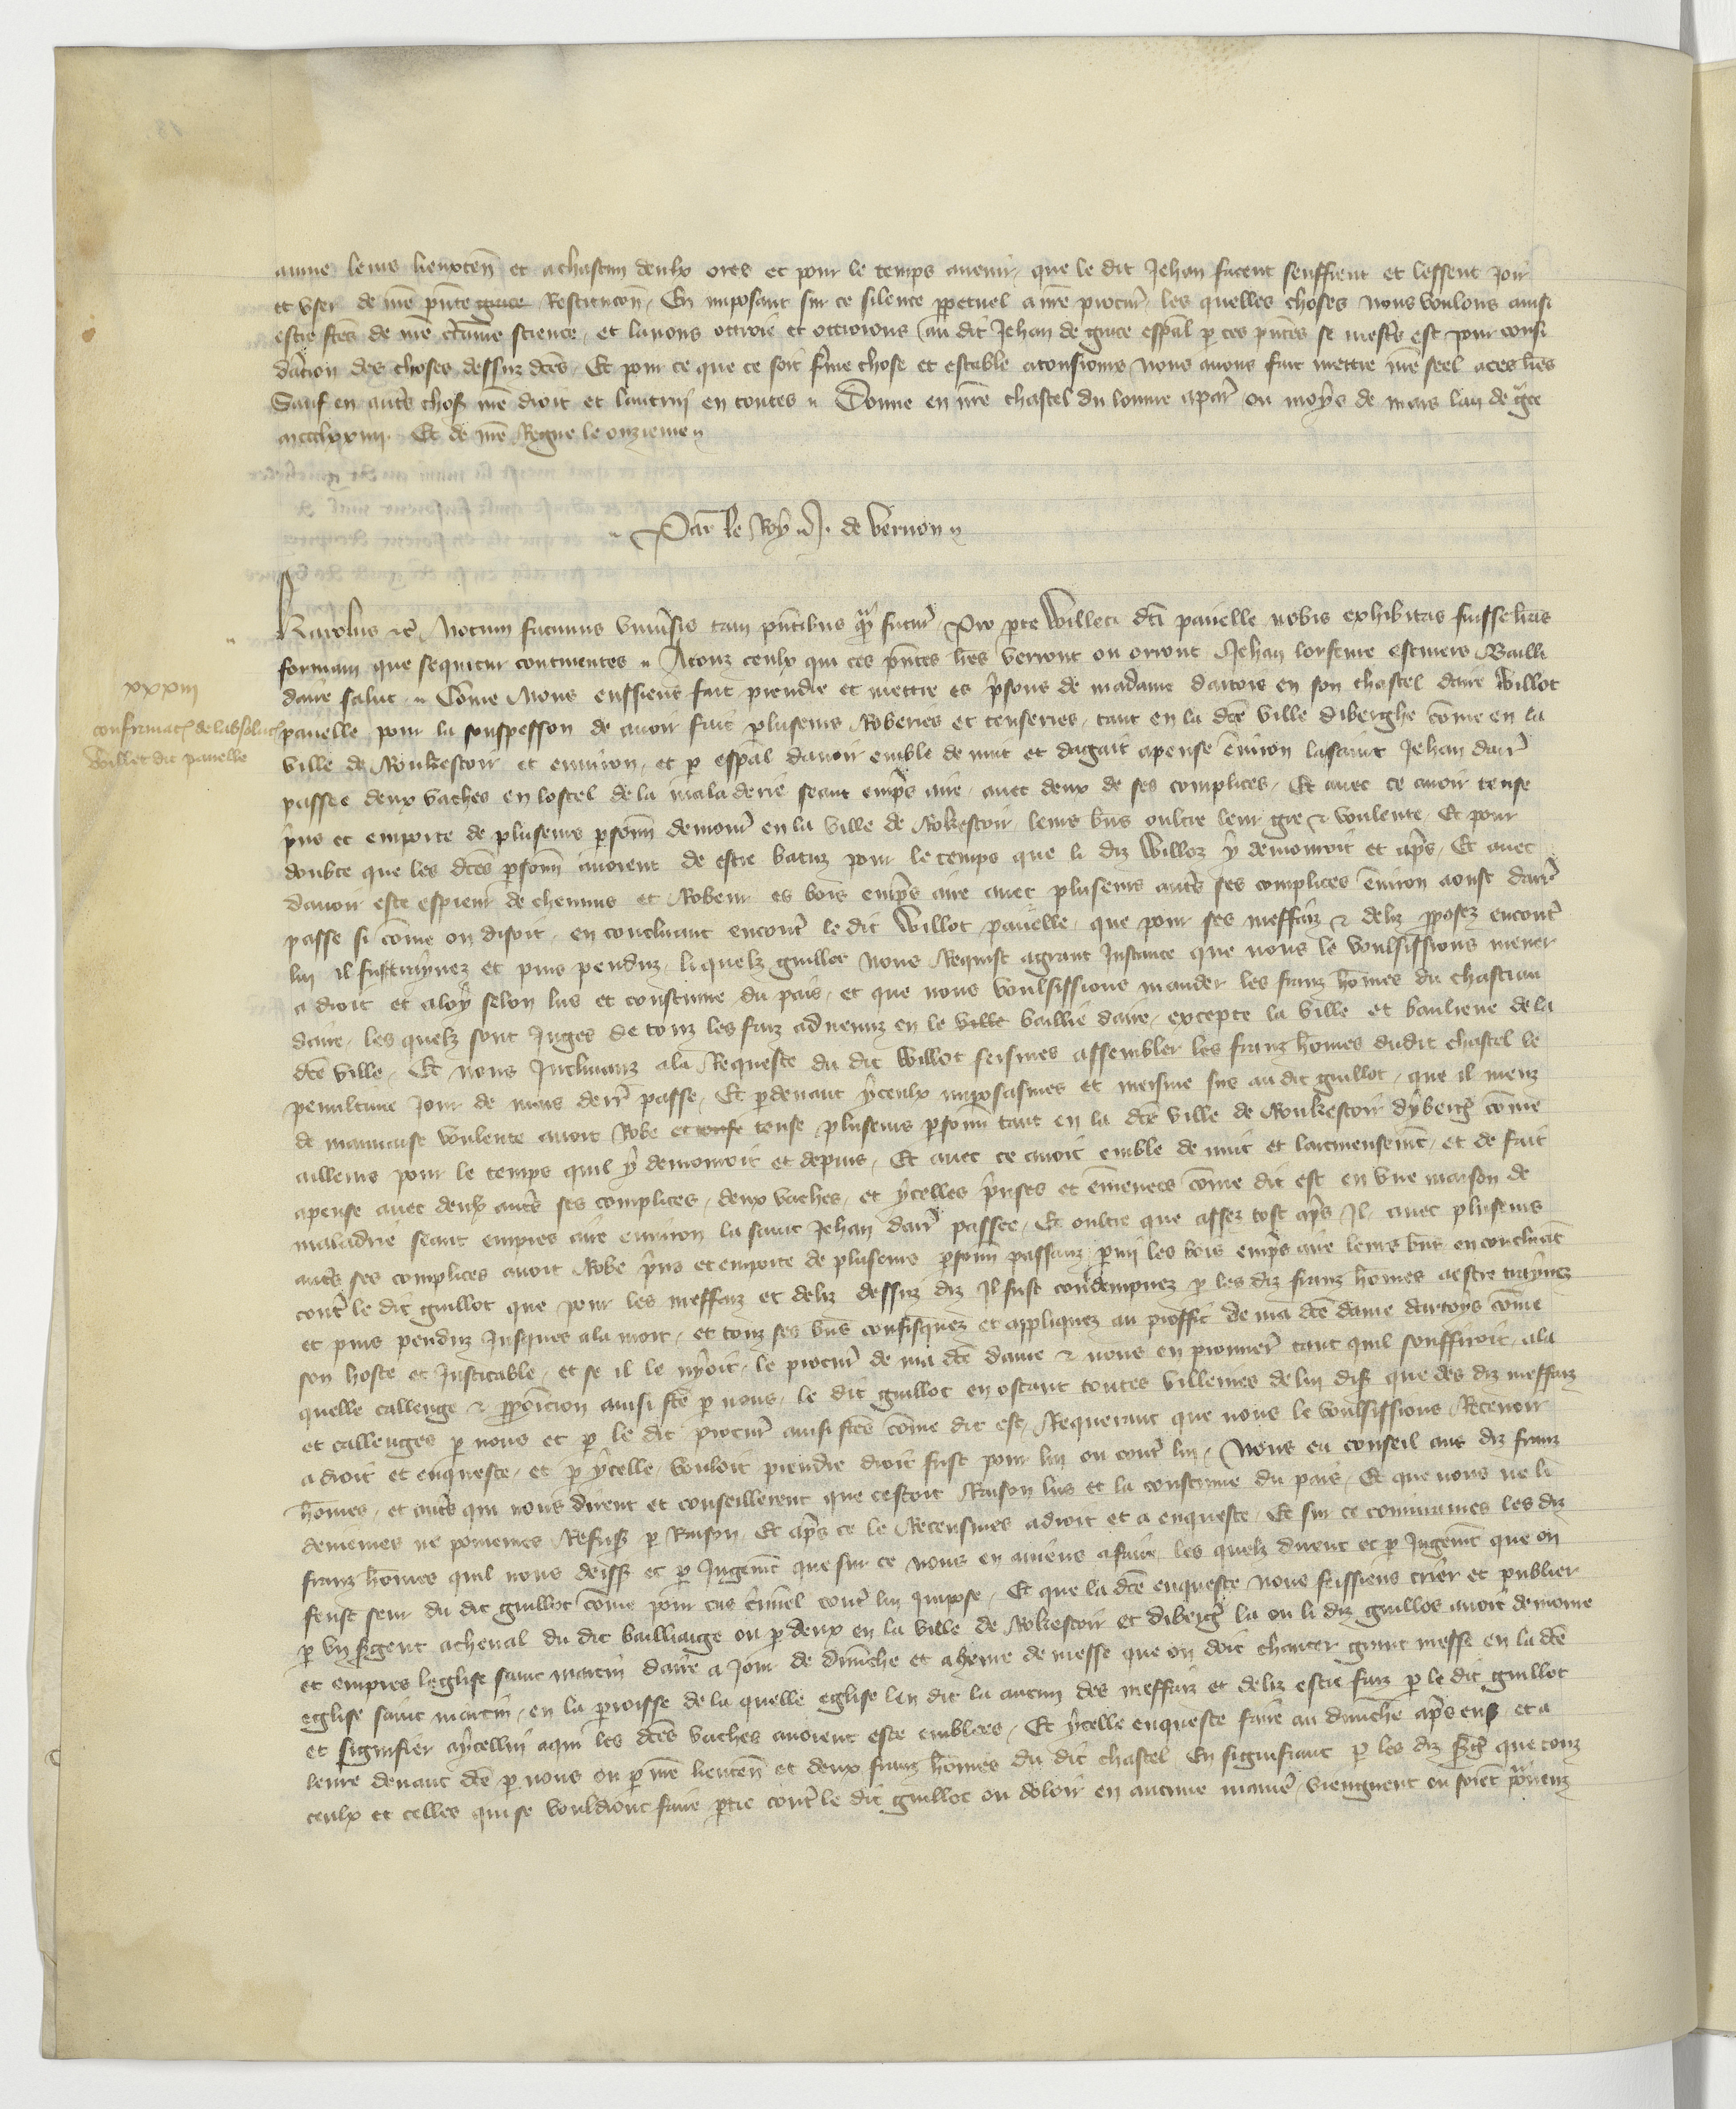 aume leurs lieuxten̄ et a chascun deulx ores et pour le temps auenir, que le dit Jehan facent seuffrent et lessent Joir
et vser de nr̄e pn̄te grace Restitucon̄, En imposant sur ce silence ꝑpetuel a nr̄e procur̄, les quelles choses nous voulons ainsi
estre ft̄es de nr̄e ct̄aine science, et lauons ottroie et ottroions au dit Jehan de grace esp̄al ꝑ ces pn̄tes se mest̄s est pour consi
dāion des choses dessuz dc̄es, Et pour ce que ce soit ferme chose et estable atousiours nous auons fait mettre nr̄e seel a ces lr̄es
Sauf en aut̄s chos̄ nr̄e droit et lautruj en toutes Donne en nr̄e chastel du louure a par̄ ou moys de mars lan de gr̄ce
mccclxxiiij. Et de nr̄e Regne le onzieme
Par le Roy J. de Vernon
Karolus &c̄ Notum facimus vniu̅sis tam pn̄tibus qᵃ̄ futur̄, Pro ꝑte Willeti dc̄i pauelle nobis exhibitas fuisse lr̄as
formam que sequitur continentes Atouz ceulx qui ces pn̄tes lr̄es verront ou orront Jehan lorfeure Bailli
daire salut Cōme Nous eussiens fait prendre et mettre es p̄sons de madame dartois en son chastel daire Willot
xxxiij
confirmac̄ de labsoluc̄
Willet dit pauelle
pauelle pour la souspesson de auoir fait pluseurs Roberies et tenseries, tant en la dc̄e ville diberghe cōme en la
ville de Roukestoir et enuiron, et ꝑ esp̄al dauoir emble de nuit et dagait apense en̄uiron la saint Jehan darr̄
passee deux vaches en lostel de la maladerie seant emp̄s aire, auec deux de ses complices, Et auec ce auoir tense
p̄ns et emporte de pluseurs ꝑson̄n demour̄ en la ville de Rokestoir, leurs bn̄s oultre leur gre & voulente, Et pour
doubte que les dc̄es ꝑson̄n auoient de estre batuz pour le temps que li diz Willoz y demouroit et ap̄s, Et auec
dauoir este espieur de chemins et Robeur es bois emp̄s aire auec pluseurs aut̄s ses complices en̄uiron aoust darr̄
passe si cōme on disoit, en concluant encont̄ le dit Willot pauelle, que pour ses meffaiz & deliz ꝓposez encont̄
lui il fust traynez et puis penduz, li quelz guillot nous Requist a grant Instance que nous le voulsissions mener
a droit et a loy selon lus et coustume du pais, et que nous voulsissions mander les franz hōmes du chastiau
daire, les quelz sont Juges de touz les faiz aduenuz en le ville baillie daire, excepte la ville et banlieue de la
dc̄e ville, Et nous Inclinanz a la Requeste du dit Willot feismes assembler les franz hōmes dudit chastel le
penultime Jour de mars derr̄ passe, Et ꝑ deuant yceulx imposasmes et meisme sus au dit guillot, que il meuz
de mauuaise voulente auoit Robe et tense pluseurs ꝑson̄n tant en la dc̄e ville de Roukestoir dyberḡ cōme
ailleurs pour le temps quil y demouroit et depuis, Et auec ce auoit emble de nuit et larrneusem̄t, et de fait
apense auec deux aut̄s ses complices, deux vaches, et ycelles p̄nses et em̄enees cōme dit est en vne maison de
maladrie seant empres aire enuiron la saint Jehan darr̄ passee, Et oultre que assez tost ap̄s Il auec pluseurs
aut̄s ses complices auoit Robe p̄ns et emporte de pluseurs ꝑson̄n passanz ꝑmi les bois emp̄s aire leurs bn̄s en concluāt
cont̄ le dit guillot que pour les meffaiz et deliz dessuz diz Il fust condempnez ꝑ les diz franz hōmes a estre traynez
et puis penduz Jusques a la mort, et touz ses bn̄s confisquez et appliquez au proffit de ma dc̄e dame dartoys cōme
son hoste et Justicable, et se il le nyoit, le procur̄ de ma dc̄e dame & nous en prouuer̄ tant quil souffiroit, a la
quelle callenge & ꝓpoīcion ainsi ft̄e ꝑ nous, le dit guillot en ostant toutes villenies de lui dis̄ que des diz meffaiz
et callenges ꝑ nous et ꝑ le dit procur̄ ainsi ft̄es cōme dit est, Requerant que nous le voulsissions Receuoir
a droit et enqueste, et ꝑ ycelle, vouloit prendre droit fust pour lui ou cont̄ lui, Nous eu conseil aus diz franz
hōmes, et aut̄s qui nous dirent et conseillerent que cestoit Raison lus et la coustume du pais, Et que nous ne li
deuiemes ne pouiemes Refus̄ ꝑ Raison, Et ap̄s ce le Receusmes a droit et a enqueste, Et sur ce coniurames les diz
franz hōmes quil nous deiss̄ et ꝑ Jugem̄t que sur ce nous en auiens a faire, les quelz dirent et ꝑ Jugem̄t que on
feust seur du dit guillot cōme pour cas c̄minel cont̄ lui Impose, Et que la dc̄e enqueste nous feissiens crier et publier
ꝑ vn s̄gent a cheual du dit bailliaige ou ꝑ deux en la ville de Rokestoir et diberḡ la ou li diz guillos auoit demore
et empres leglise saint martin daire a Jour de dimēche et a heure de messe que on doit chanter grant messe en la dc̄e
eglise saint martin, en la ꝑroisse de la quelle eglise len dit la aucun des meffaiz et deliz estre faiz ꝑ le dit guillot
et signifier a ycellui a qui les dc̄es vaches auoient este emblees, Et ycelle enqueste faire au dimēche ap̄s ens̄ et a
leure deuant dc̄e ꝑ nous ou ꝑ nr̄e lieuten̄ et deux franz hōmes du dit chastel En signifiant ꝑ les diz s̄ḡ que touz
ceulx et celles qui se vouldront faire ꝑtie cont̄ le dit guillot ou doloir en aucune manier̄, viengnent ou soiēt